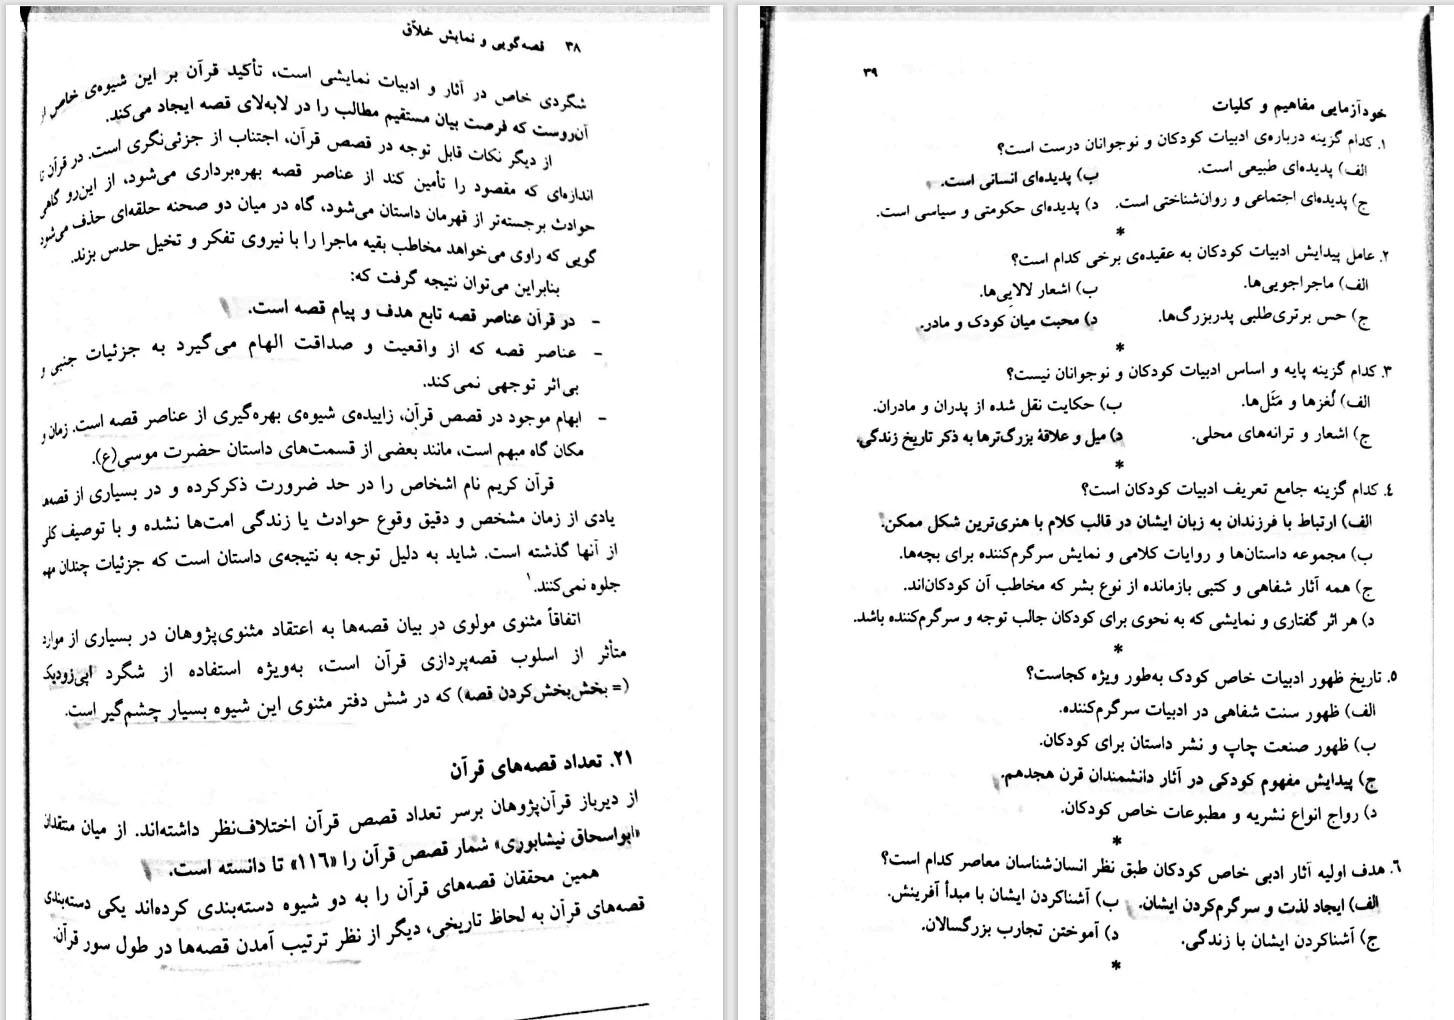 ۳۸ قصه‌گویی و نمایش خلاّق
شگردی خاص در آثار و ادبیات نمایشی است، تأکید قرآن بر این شیوه‌ی خاص از
آن‌روست که فرصت بیان مستقیم مطالب را در لابه‌لای قصه ایجاد می‌کند.
از دیگر نکات قابل توجه در قصص قرآن، اجتناب از جزئی‌نگری است. در قرآن تا
اندازه‌ای که مقصود را تأمین کند از عناصر قصه بهره‌برداری می‌شود، از این‌رو گاهی
حوادث برجسته‌تر از قهرمان داستان می‌شود، گاه در میان دو صحنه حلقه‌ای حذف می‌شود
گویی که راوی می‌خواهد مخاطب بقیه ماجرا را با نیروی تفکر و تخیل حدس بزند.
بنابراین می‌توان نتیجه گرفت که:
- در قرآن عناصر قصه تابع هدف و پیام قصه است.
- عناصر قصه که از واقعیت و صداقت الهام می‌گیرد به جزئیات جنبی و
بی‌اثر توجهی نمی‌کند.
- ابهام موجود در قصص قرآن، زاییده‌ی شیوه‌ی بهره‌گیری از عناصر قصه است. زمان و
مکان گاه مبهم است، مانند بعضی از قسمت‌های داستان حضرت موسی(ع).
قرآن کریم نام اشخاص را در حد ضرورت ذکرکرده و در بسیاری از
یادی از زمان مشخص و دقیق وقوع حوادث یا زندگی امت‌ها نشده و با توصیف کلی
از آنها گذشته است. شاید به دلیل توجه به نتیجه‌ی داستان است که جزئیات چندان
جلوه نمی‌کنند.۱
اتفاقاً مثنوی مولوی در بیان قصه‌ها به اعتقاد مثنوی‌پژوهان در بسیاری از موارد
متأثر از اسلوب قصه‌پردازی قرآن است، به‌ویژه استفاده از شگرد اپی‌زودیک
(= بخش‌بخش‌کردن قصه) که در شش دفتر مثنوی این شیوه بسیار چشم‌گیر است.
۲۱. تعداد قصه‌های قرآن
از دیرباز قرآن‌پژوهان برسر تعداد قصص قرآن اختلاف‌نظر داشته‌اند. از میان منتقدان
«ابواسحاق نیشابوری» شمار قصص قرآن را «۱۱۶» تا دانسته است.
همین محققان قصه‌های قرآن را به دو شیوه دسته‌بندی کرده‌اند یکی دسته‌بندی
قصه‌های قرآن به لحاظ تاریخی، دیگر از نظر ترتیب آمدن قصه‌ها در طول سور قرآن.
۳۹
خودآزمایی مفاهیم و کلیات
۱. کدام گزینه درباره‌ی ادبیات کودکان و نوجوانان درست است؟
الف) پدیده‌ای طبیعی است. ب) پدیده‌ای انسانی است.
ج) پدیده‌ای اجتماعی و روان‌شناختی است. د) پدیده‌ای حکومتی و سیاسی است.
*
۲. عامل پیدایش ادبیات کودکان به عقیده‌ی برخی کدام است؟
الف) ماجراجویی‌ها. ب) اشعار لالایی‌ها.
ج) حس برتری‌طلبی پدربزرگ‌ها. د) محبت میان کودک و مادر.
*
۳. کدام گزینه پایه و اساس ادبیات کودکان و نوجوانان نیست؟
الف) لُغزها و مَثَل‌ها. ب) حکایت نقل شده از پدران و مادران.
ج) اشعار و ترانه‌های محلی. د) میل و علاقهٔ بزرگ‌ترها به ذکر تاریخ زندگی.
*
۴. کدام گزینه جامع تعریف ادبیات کودکان است؟
الف) ارتباط با فرزندان به زبان ایشان در قالب کلام با هنری‌ترین شکل ممکن.
ب) مجموعه داستان‌ها و روایات کلامی و نمایش سرگرم‌کننده برای بچه‌ها.
ج) همه آثار شفاهی و کتبی بازمانده از نوع بشر که مخاطب آن کودکان‌اند.
د) هر اثر گفتاری و نمایشی که به نحوی برای کودکان جالب توجه و سرگرم‌کننده باشد.
*
۵. تاریخ ظهور ادبیات خاص کودک به‌طور ویژه کجاست؟
الف) ظهور سنت شفاهی در ادبیات سرگرم‌کننده.
ب) ظهور صنعت چاپ و نشر داستان برای کودکان.
ج) پیدایش مفهوم کودکی در آثار دانشمندان قرن هجدهم.
د) رواج انواع نشریه و مطبوعات خاص کودکان.
*
۶. هدف اولیه آثار ادبی خاص کودکان طبق نظر انسان‌شناسان معاصر کدام است؟
الف) ایجاد لذت و سرگرم‌کردن ایشان. ب) آشناکردن ایشان با مبدأ آفرینش.
ج) آشناکردن ایشان با زندگی. د) آموختن تجارب بزرگسالان.
*